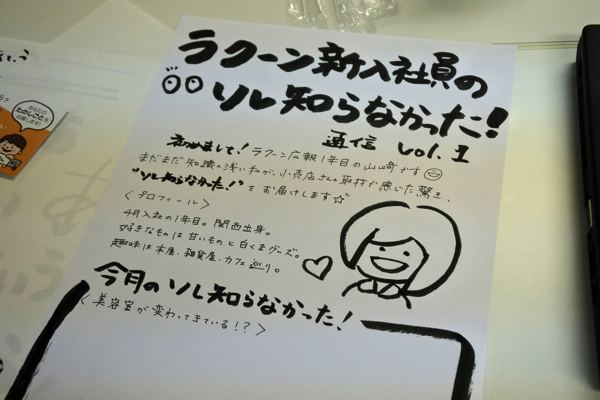 ラクーン新入社員の
ソレ知らなかった!
通信 vol.1
初めまして!ラクーン広報1年目の山崎です
まだまだ知識の浅い私が、小売店さんの取材で感じた驚き、
"ソレ知らなかった!"をお届けします☆
<プロフィール>
4月入社の1年目。関西出身。
好きなものは甘いものと白くまグッズ。
趣味は本屋、雑貨屋、カフェ巡り。
今月のソレ知らなかった!
<美容室が変わってきている!?>
あなたの
たのしごとを
応援します!